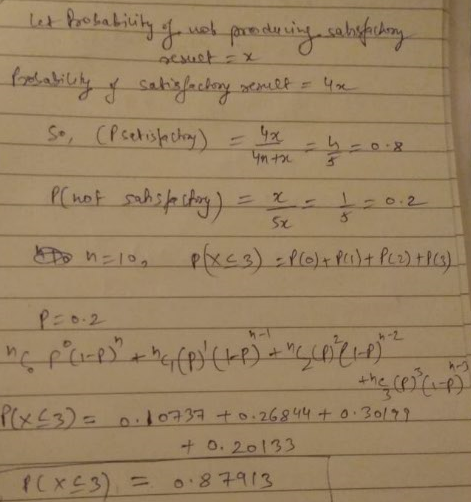 Let Probability of not producing satisfactory
result = x
Probability of satisfactory result = 4x
So, (P satisfactory) = 4x/4x+x = 4/5 = 0.8
P(not satisfactory) = x/5x = 1/5 = 0.2
n=10, P(X≤3) = P(0)+P(1)+P(2)+P(3)
P=0.2
ⁿC₀ P⁰(1-P)ⁿ + ⁿC₁(P)¹(1-P)ⁿ⁻¹ + ⁿC₂(P)²(1-P)ⁿ⁻²
+ ⁿC₃(P)³(1-P)ⁿ⁻³
P(X≤3) = 0.10737 + 0.26844 + 0.30199
+ 0.20133
P(X≤3) = 0.87913